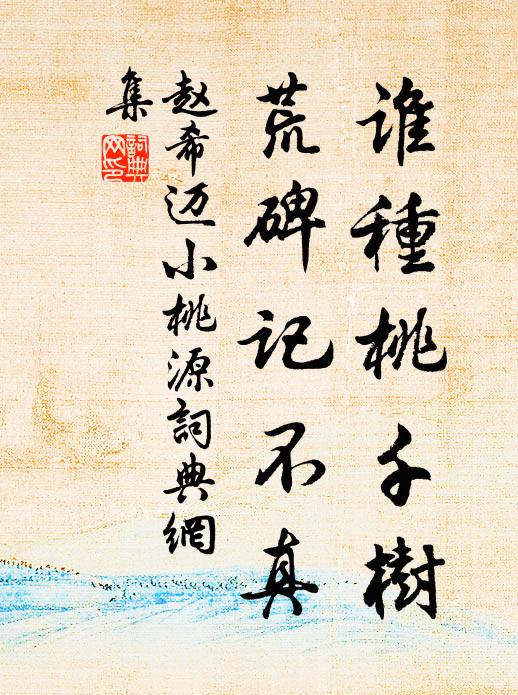 誰種桃千樹
荒碑記不真
赵希迈小桃源詞典網
集
詞典
网印